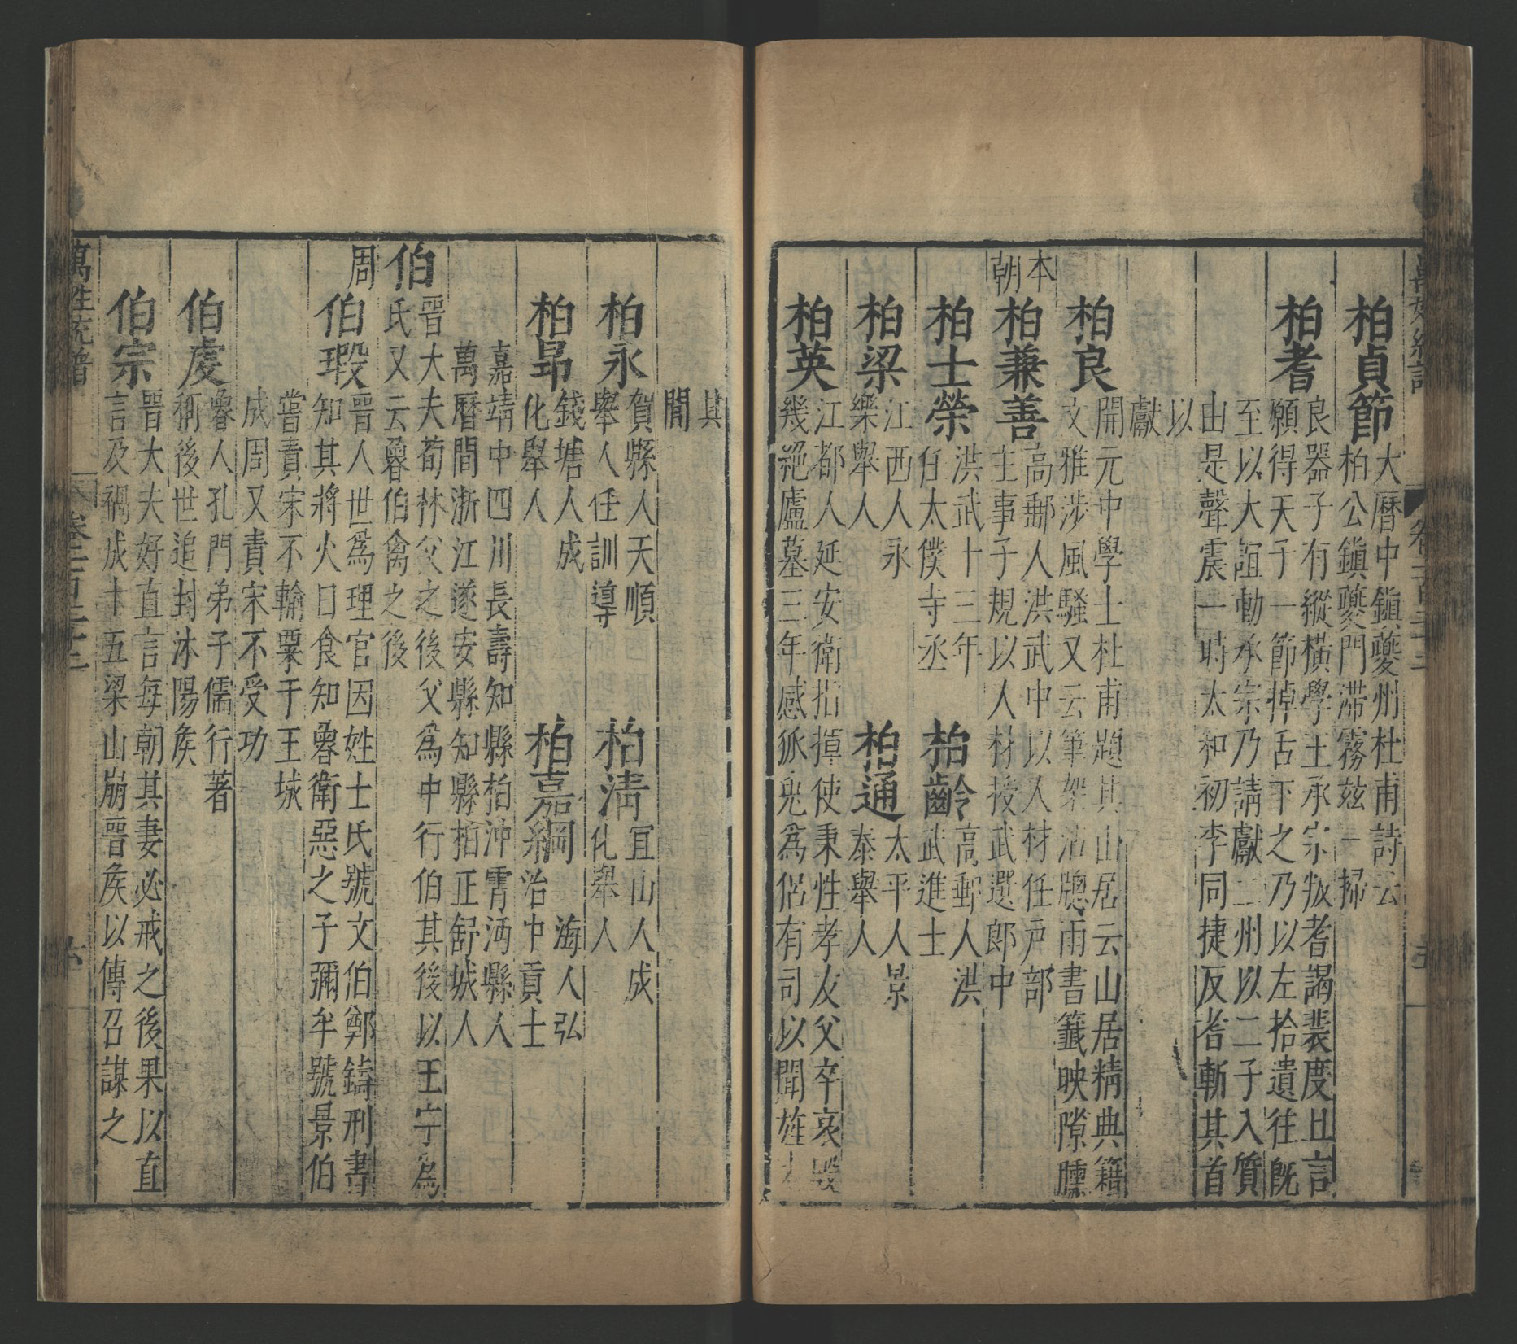 柏貞節
大曆中鎮夔州杜甫詩云
柏公鎮夔門滯霧兹一掃
柏耆
良器子有縱橫學王承宗叛者謁裴度且言
願得天子一節掉舌下之乃以左拾遺往旣
至以大誼動承宗乃請獻二州以二子入質
由是聲震一時太和初李同捷反者斬其首
以
獻
柏良
開元中學士杜甫題其山居云山居精典籍
文雅涉風騷又云筆架沾牕雨書籤映隙曛
本
朝
柏兼善
高郵人洪武中以人材任戸部
主事子規以人材授武選郎中
柏士榮
洪武十三年
任太僕寺丞
柏齡
高郵人洪
武進士
柏梁
江西人永
樂舉人
柏通
太平人景
泰舉人
柏英
江都人延安衛指揮使秉性孝友父卒哀毀
幾絕廬墓三年感狐兎為侶有司以聞旌
其
閭
柏永
賀縣人天順
舉人任訓導
柏清
宜山人成
化舉人
柏昂
錢塘人成
化舉人
柏嘉
海人弘
治中貢士
嘉靖中四川長壽知縣柏沖霄沔縣人
萬曆間浙江遂安縣知縣柏正舒城人
伯
晉大夫荀林父之後父為中行伯其後以王字為
氏又云魯伯禽之後
周
伯瑕
晉人世為理官因姓士氏號文伯鄭鑄刑書
知其將火日食知魯衛惡之子彌牟號景伯
嘗責宋不輸粟于王城
成周又責宋不受功
伯虔
魯人孔門弟子儒行著
稱後世追封沐陽矦
伯宗
晉大夫好直言每朝其妻必戒之後果以直
言及禍成十五梁山崩晉矦以傳召謀之
萬姓統譜